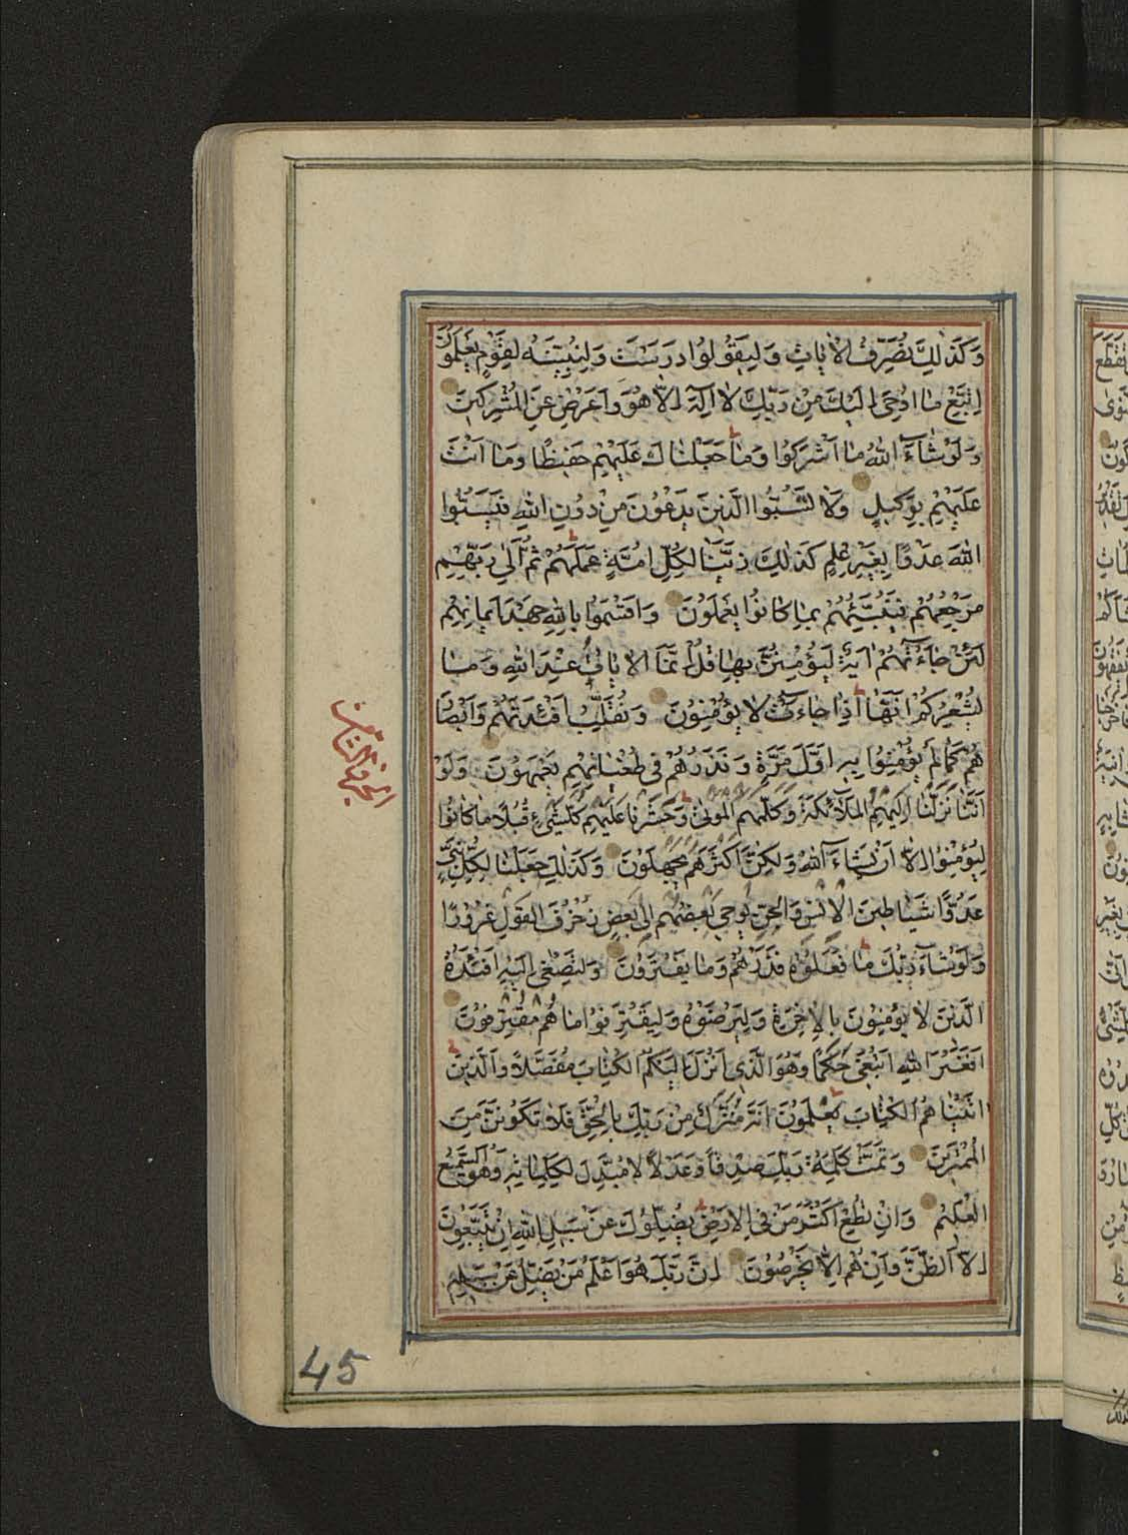 وَكَذٰلِكَ نُصَرِّفُ الْاٰيَاتِ وَلِيَقُولُوا دَرَسْتَ وَلِنُبَيِّنَهُ لِقَوْمٍ يَعْلَمُونَ
اِتَّبِعْ مَا اُوحِيَ اِلَيْكَ مِنْ رَبِّكَ لَا اِلٰهَ اِلَّا هُوَ وَاَعْرِضْ عَنِ الْمُشْرِكِينَ
وَلَوْ شَاءَ اللهُ مَا اَشْرَكُوا وَمَا جَعَلْنَاكَ عَلَيْهِمْ حَفِيظًا وَمَا اَنْتَ
عَلَيْهِمْ بِوَكِيلٍ وَلَا تَسُبُّوا الَّذِينَ يَدْعُونَ مِنْ دُونِ اللهِ فَيَسُبُّوا
اللهَ عَدْوًا بِغَيْرِ عِلْمٍ كَذٰلِكَ زَيَّنَّا لِكُلِّ اُمَّةٍ عَمَلَهُمْ ثُمَّ اِلٰى رَبِّهِمْ
مَرْجِعُهُمْ فَيُنَبِّئُهُمْ بِمَا كَانُوا يَعْمَلُونَ وَاَقْسَمُوا بِاللهِ جَهْدَ اَيْمَانِهِمْ
لَئِنْ جَاءَتْهُمْ اٰيَةٌ لَيُؤْمِنُنَّ بِهَا قُلْ اِنَّمَا الْاٰيَاتُ عِنْدَ اللهِ وَمَا
يُشْعِرُكُمْ اَنَّهَا اِذَا جَاءَتْ لَا يُؤْمِنُونَ وَنُقَلِّبُ اَفْئِدَتَهُمْ وَاَبْصَارَ
هُمْ كَمَا لَمْ يُؤْمِنُوا بِهِ اَوَّلَ مَرَّةٍ وَنَذَرُهُمْ فِي طُغْيَانِهِمْ يَعْمَهُونَ وَلَوْ
اَنَّنَا نَزَّلْنَا اِلَيْهِمُ الْمَلٰٓئِكَةَ وَكَلَّمَهُمُ الْمَوْتٰى وَحَشَرْنَا عَلَيْهِمْ كُلَّ شَيْءٍ قُبُلًا مَا كَانُوا
لِيُؤْمِنُوا اِلَّا اَنْ يَشَاءَ اللهُ وَلٰكِنَّ اَكْثَرَهُمْ يَجْهَلُونَ وَكَذٰلِكَ جَعَلْنَا لِكُلِّ نَبِيٍّ
عَدُوًّا شَيَاطِينَ الْاِنْسِ وَالْجِنِّ يُوحِي بَعْضُهُمْ اِلٰى بَعْضٍ زُخْرُفَ الْقَوْلِ غُرُورًا
وَلَوْ شَاءَ رَبُّكَ مَا فَعَلُوهُ فَذَرْهُمْ وَمَا يَفْتَرُونَ وَلِتَصْغٰى اِلَيْهِ اَفْئِدَةُ
الَّذِينَ لَا يُؤْمِنُونَ بِالْاٰخِرَةِ وَلِيَرْضَوْهُ وَلِيَقْتَرِفُوا مَا هُمْ مُقْتَرِفُونَ
اَفَغَيْرَ اللهِ اَبْتَغِي حَكَمًا وَهُوَ الَّذِي اَنْزَلَ اِلَيْكُمُ الْكِتَابَ مُفَصَّلًا وَالَّذِينَ
اٰتَيْنَاهُمُ الْكِتَابَ يَعْلَمُونَ اَنَّهُ مُنَزَّلٌ مِنْ رَبِّكَ بِالْحَقِّ فَلَا تَكُونَنَّ مِنَ
الْمُمْتَرِينَ وَتَمَّتْ كَلِمَةُ رَبِّكَ صِدْقًا وَعَدْلًا لَا مُبَدِّلَ لِكَلِمَاتِهِ وَهُوَ السَّمِيعُ
الْعَلِيمُ وَاِنْ تُطِعْ اَكْثَرَ مَنْ فِي الْاَرْضِ يُضِلُّوكَ عَنْ سَبِيلِ اللهِ اِنْ يَتَّبِعُونَ
اِلَّا الظَّنَّ وَاِنْ هُمْ اِلَّا يَخْرُصُونَ اِنَّ رَبَّكَ هُوَ اَعْلَمُ مَنْ يَضِلُّ عَنْ سَبِيلِهِ
45